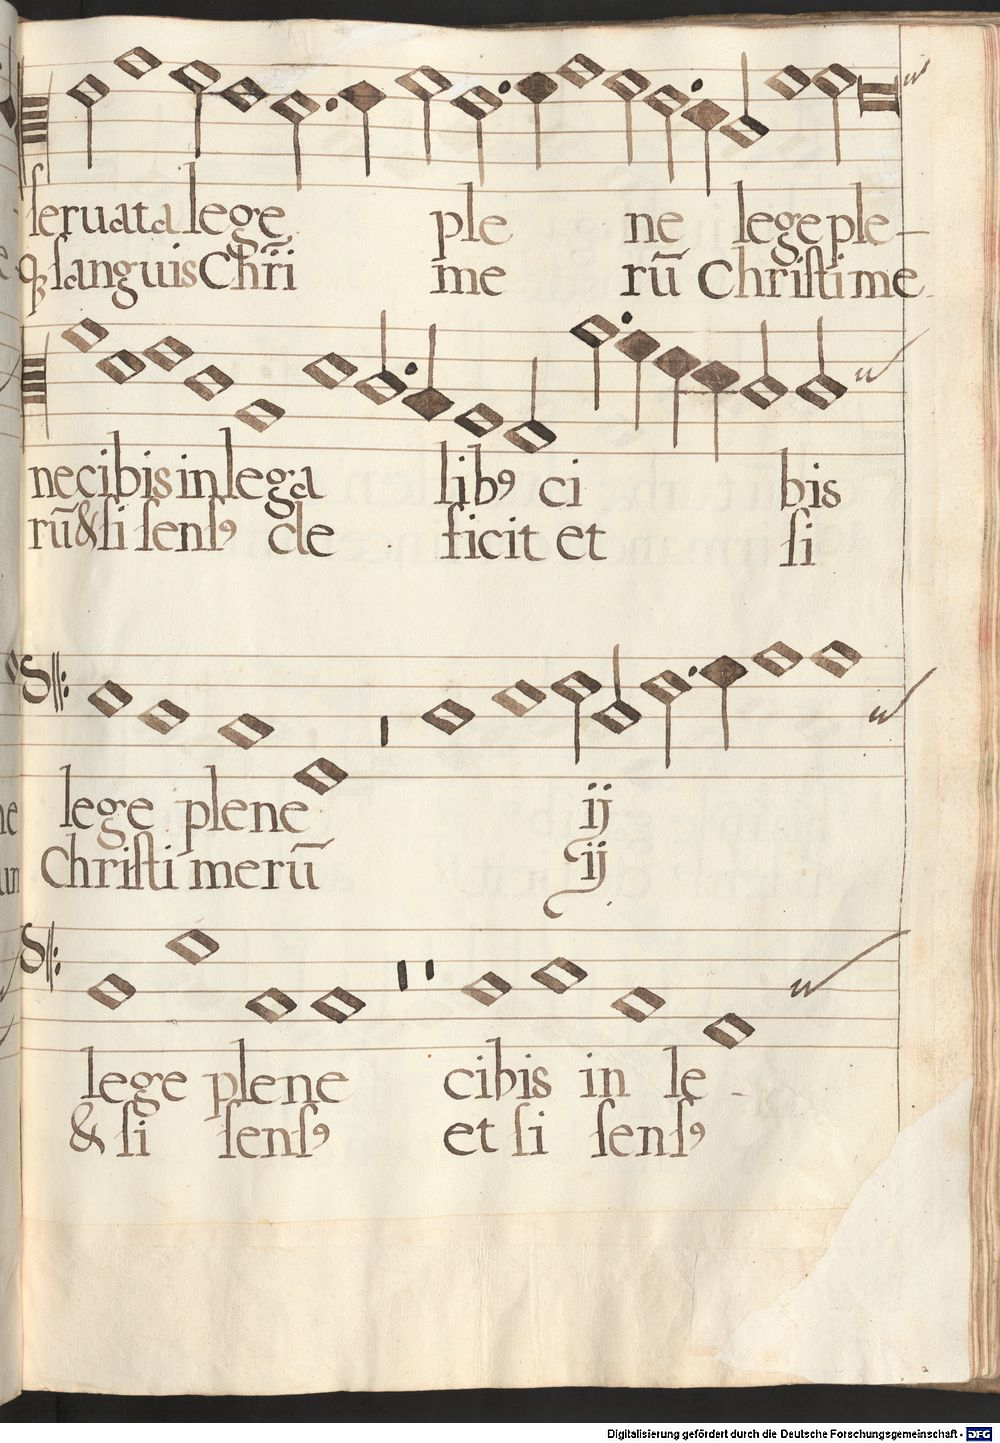 seruata lege ple ne lege ple-
qꝫ sanguis Chr̄i me rū Christi me
ne cibis in lega libꝰ ci bis
rū & si sensꝰ de ficit et si
lege plene ij
Christi merū ij
lege plene cibis in le -
& si sensꝰ et si sensꝰ
Digitalisierung gefördert durch die Deutsche Forschungsgemeinschaft - DFG